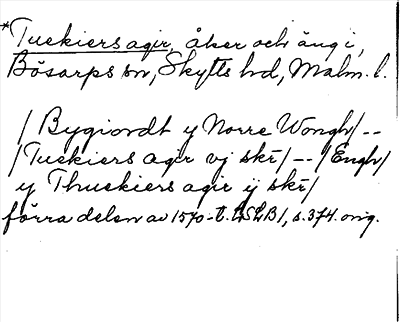 *Tuekiers agir, åker och äng i,
Bösarps sn, Skytts hd, Malm. l.
/ Bygiordt y Norre Wongh/--
/Tuekiers agir vj skr/--/Engh/
y Thuekiers agir ij skr/
förra delen av 1570-t. LSLB1, s.374. orig.